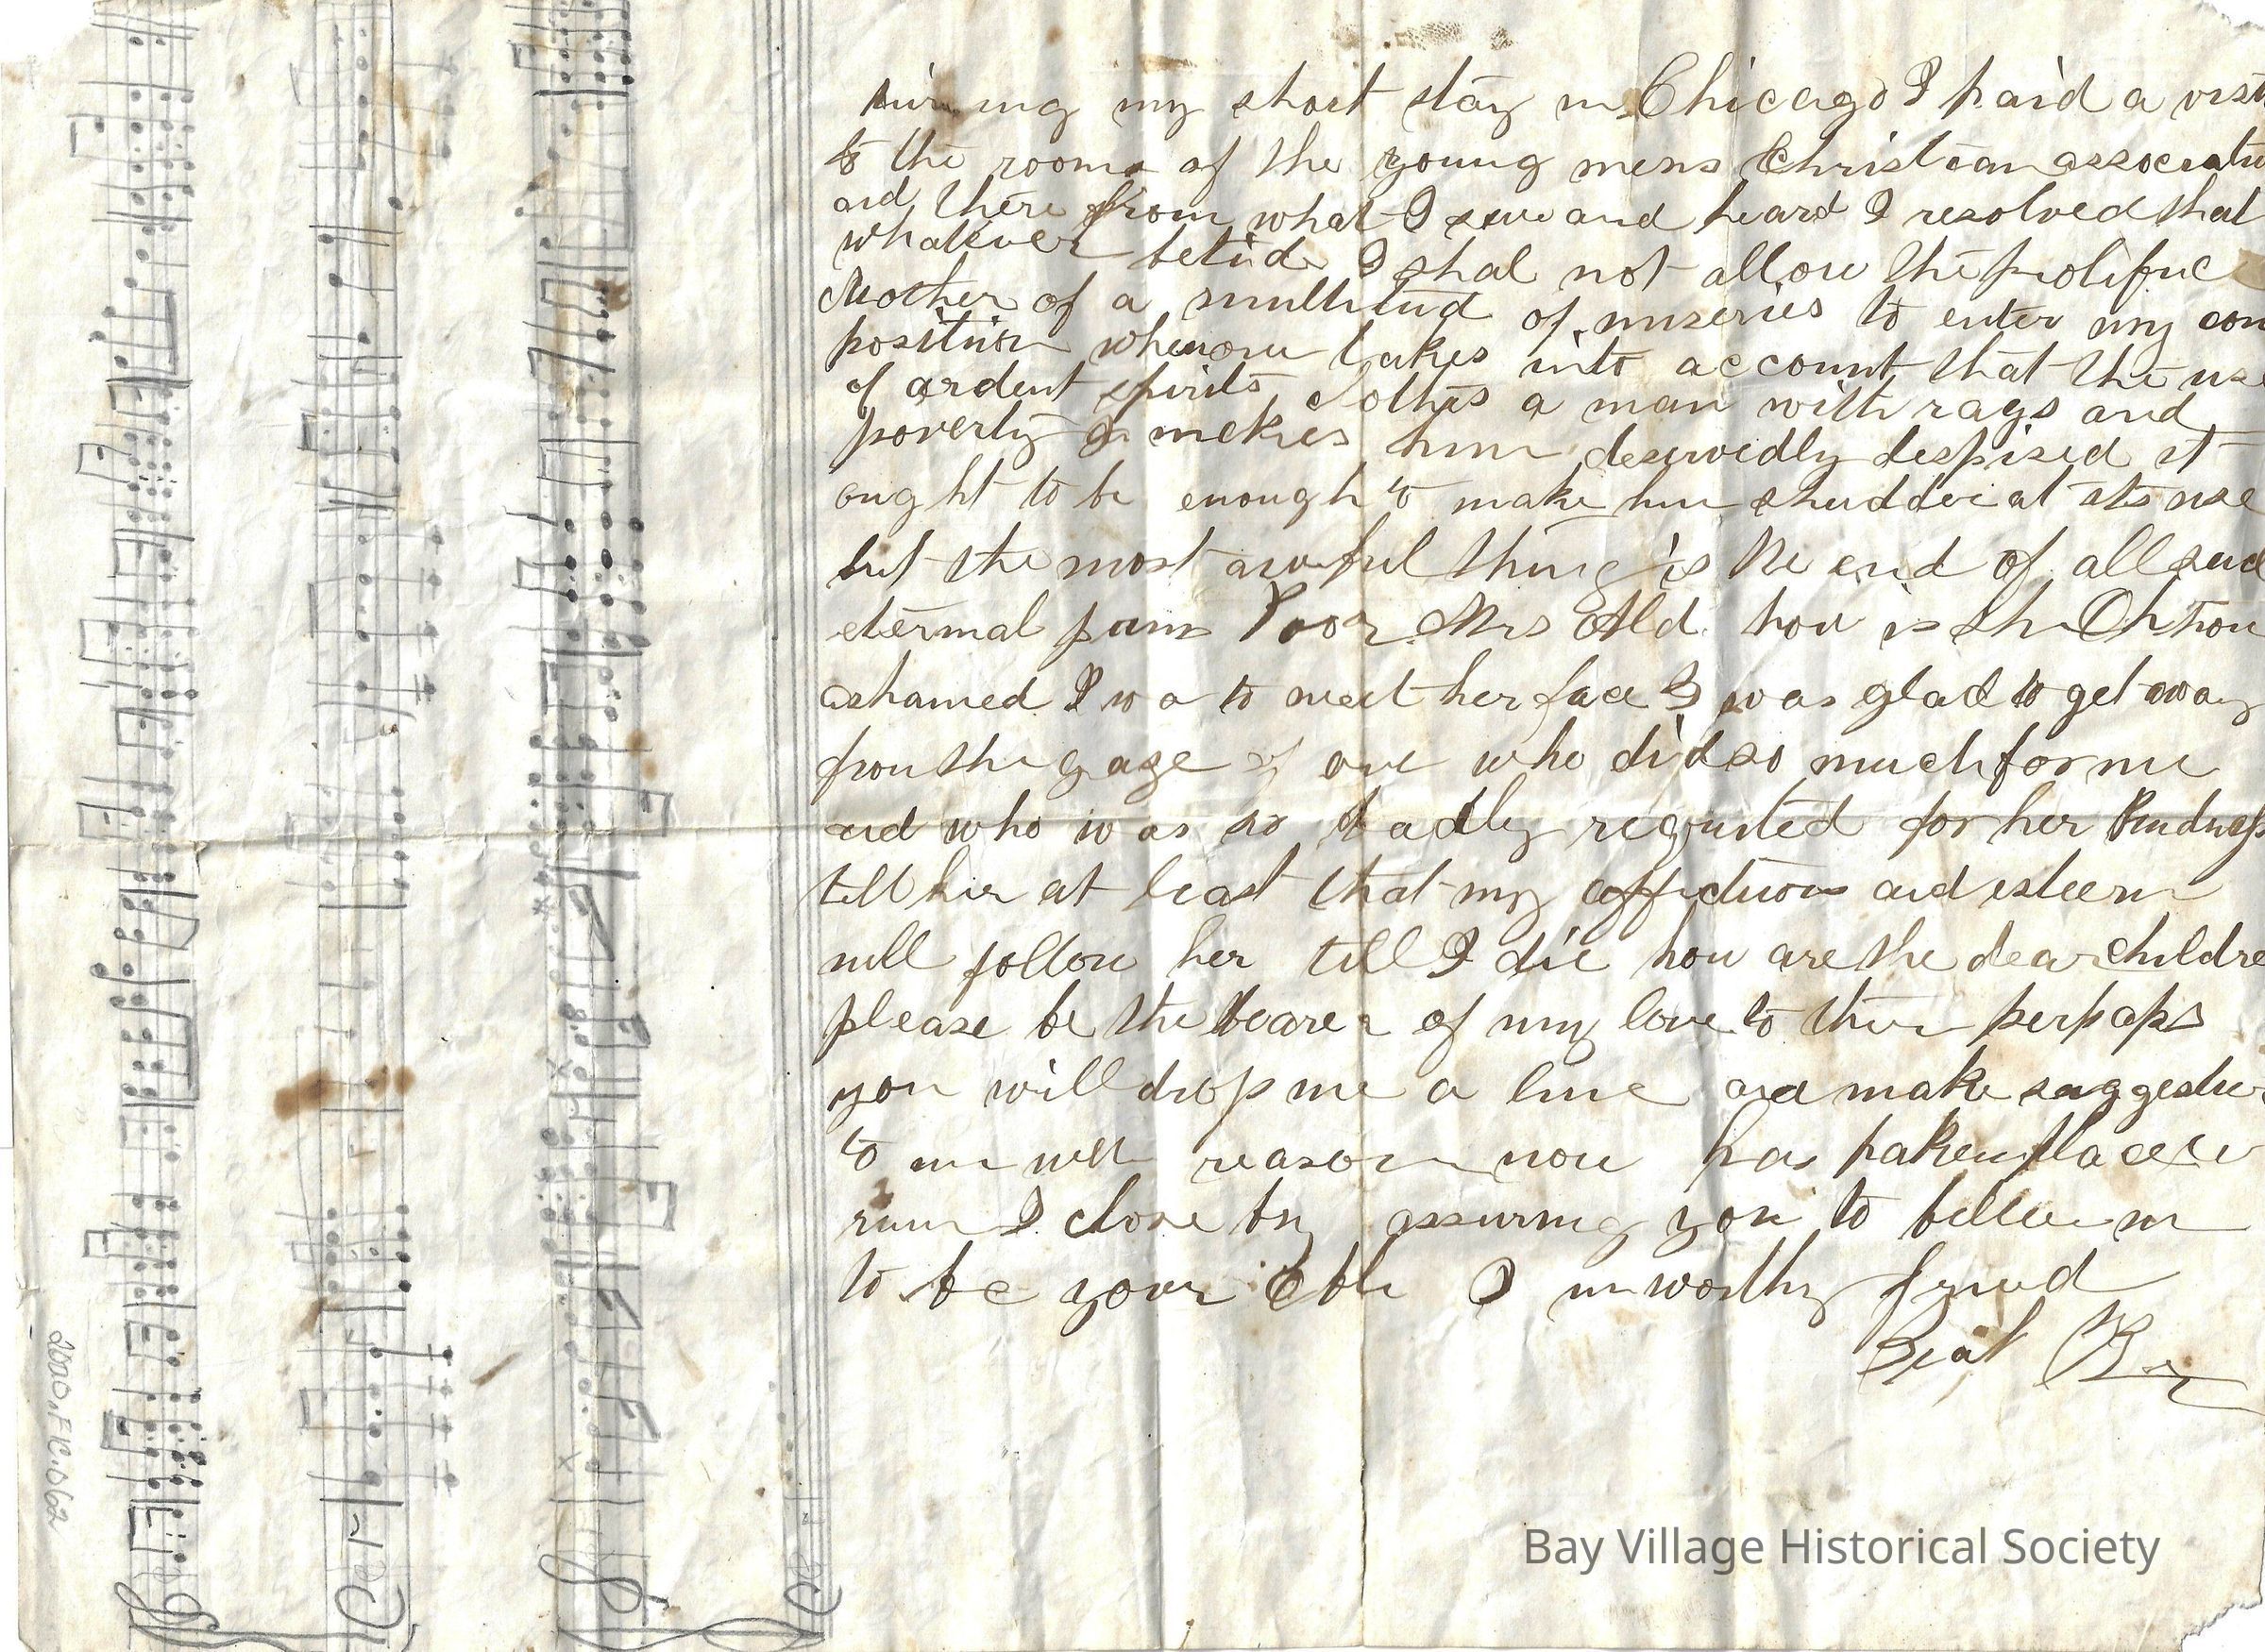 during my short stay in Chicago I paid a visit
to the rooms of the young mens Christian associatio
and there from what I saw and heard I resolved that
whatever betide I shal not allow the prolific
Mother of a multitud of miseries to enter my com
position when one takes into account that the use
of ardent spirits clothes a man with rags and
poverty & makes him deservedly despised it
ought to be enough to make him shudder at its use
but the most awful thing is the end of all such
eternal pain Poor Mrs Ald how is sh Oh how
ashamed I wa to meet her face I was glad to get away
from the gaze of one who did so much for me
and who was so badly requited for her kindness
tell her at least that my affection and esteem
will follow her till I die how are the dear childre
please be the bearer of my love to them perhaps
you will drop me a line and make suggestio
to me reason now has taken place
rum I close by assuring you to believe me
to be your unworthy friend
2000.F1C.062
Bay Village Historical Society